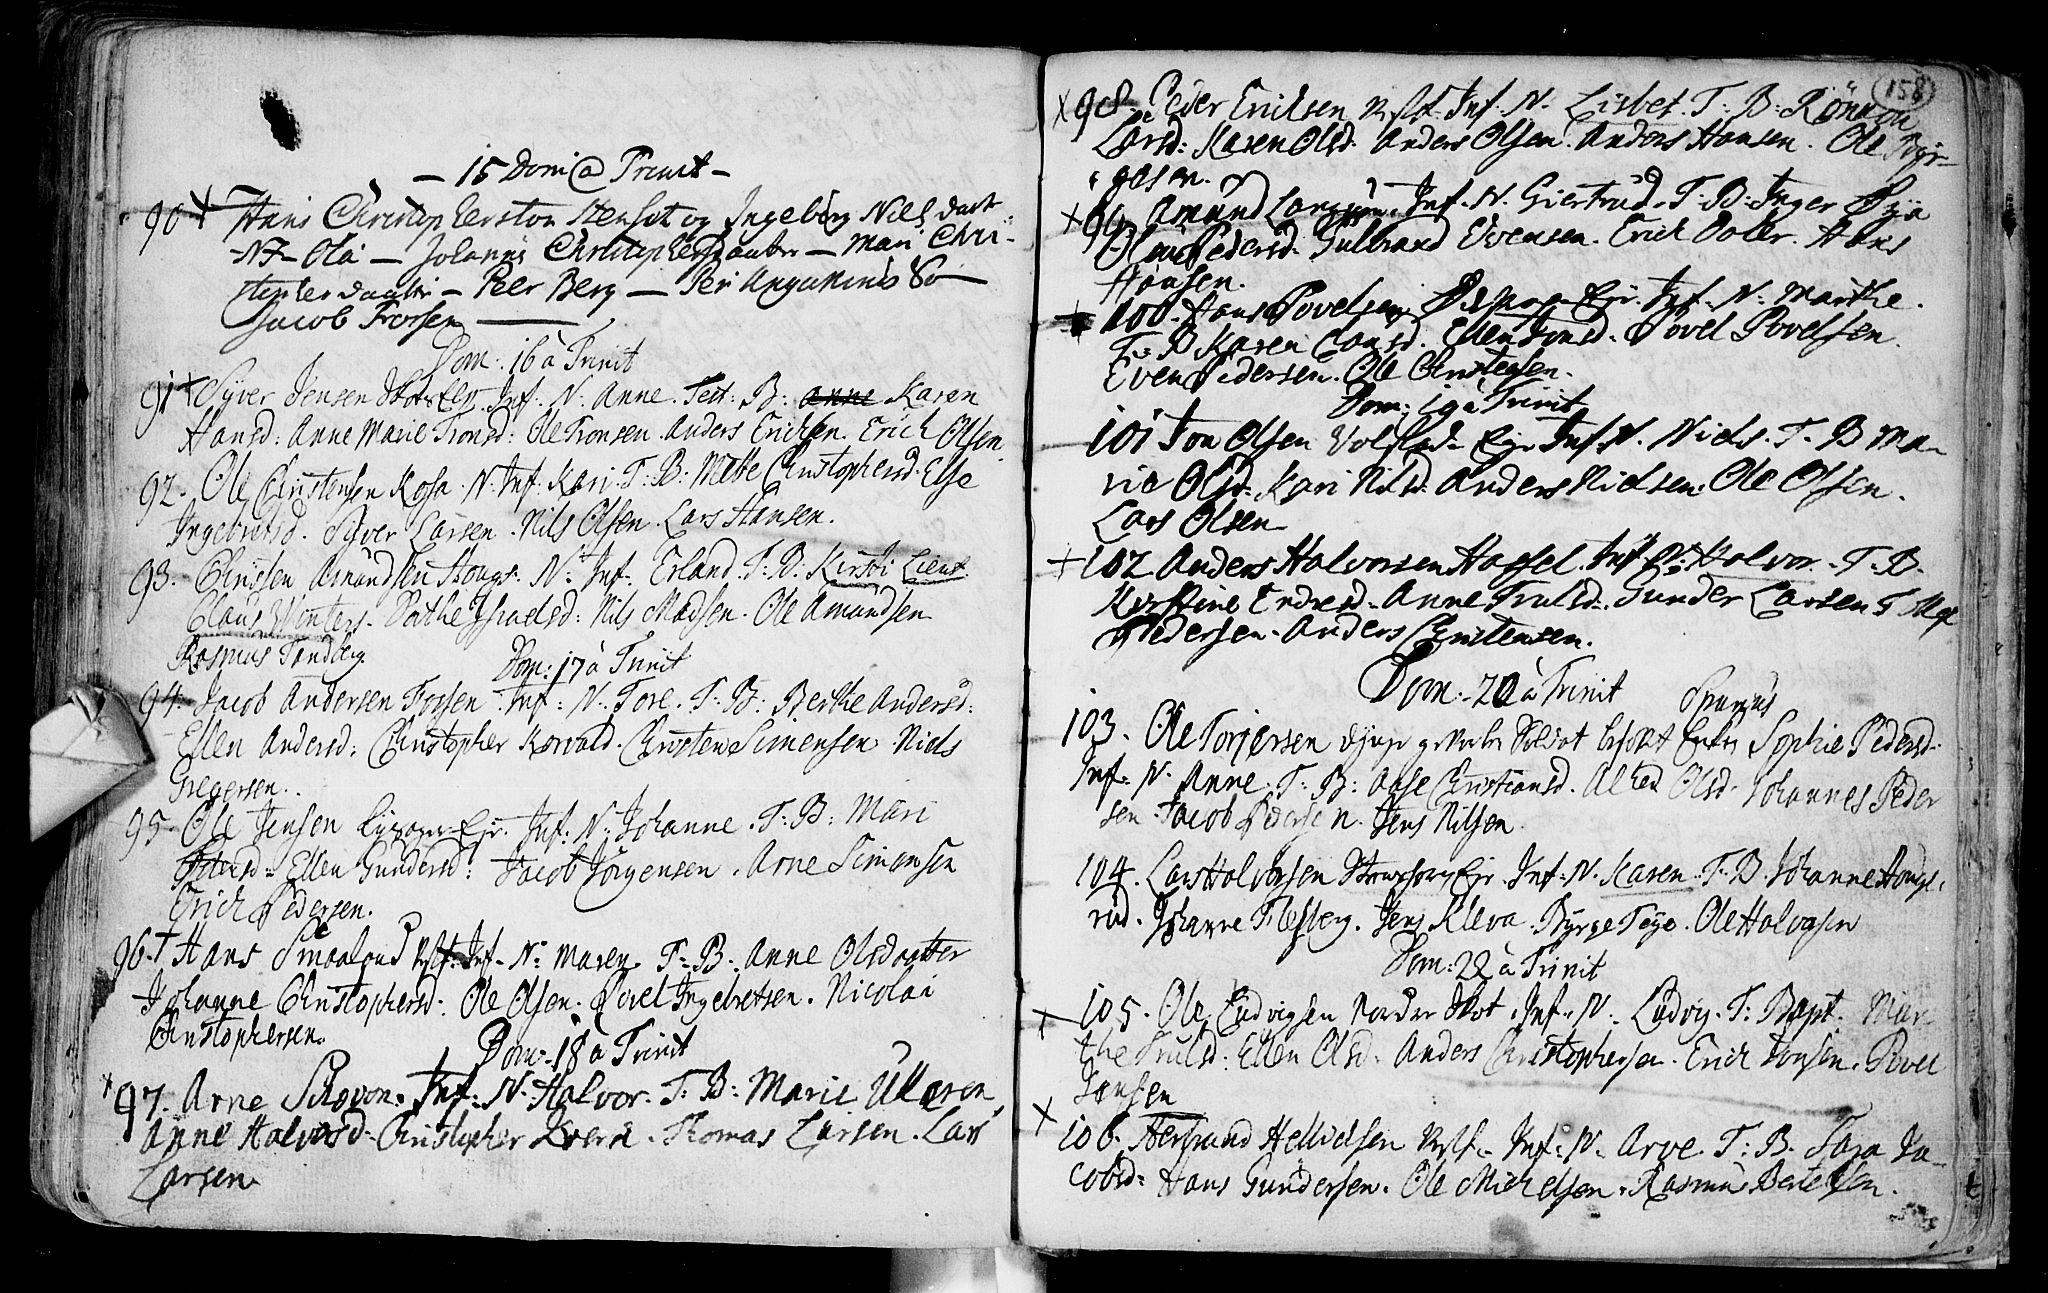 — 15 Domi @ Trinit —
90 + Hans Christopherston Stensat og Ingebörg Nils daat
N J — Ola — Johanne Christophersdaatter — Mari Chri-
stopherdaatter — Peer Berg — Peri
Jacob Trorsen
Dom: 16 à Trinit
91 + Syver Jensen Skotselv. Inf: N: Anne. Test: B: Anne Karen
Hansd: Anne Marie Tronsd: Ole Tronsen. Anders Erichsen. Erich Olsen
92. Ole Christensen Kosa. N: Inf: Kari. T: B: Mette Christophersd. Else
Ingebretsd. Syver Larsen. Nils Olsen. Lars Hansen.
93. Christen Amundsen Hougs. N: Inf. Erland. T: B. Kirsti Lieut
Claus Winters. Israelsd: Nils Madsen. Ole Amundsen
Rasmus Tandberg
Dom: 17 à Trinit
94. Jacob Andersen Fossen. Inf: N. Tore. T: B: Berthe Andersd:
Ellen Andersd: Christopher Korvald. Christen Simensen Niels
Gregersen.
95. Ole Jensen Ejr. Inf: N: Johanne. T: B: Mari
Ellen Gundersd: Jacob Jörgensen. Arne Simonsen
Erich Pedersen.
96. + Hans Smaalund Inf. N: Maren. T: B: Anne Olsdaatter
Johanne Christophersd: Ole Olsen. Povel Ingebretsen. Nicolai
Christophersen.
Dom: 18 à Trinit
+ 97. Arne Skovon. Inf: N. Halvor. T: B: Marie Ulleren
Anne Halvorsd. Christopher Thomas Larsen. Lars
Larsen.
158
X 98. Peder Erichsen Inf. N. Lisbet. T: B: Rönnou
Larsd: Karen Olsd. Anders Olsen. Anders Hansen. Ole Byr-
gesen.
X 99. Amund Inf. N. Giertrud. T: B: Inger
Pedersd. Gulbrand Evensen. Erich Hans
Hansen.
+ 100. Hans Povelsen Ejr. Inf: N: Marthe.
T: B Karen Ellen Povel Povelsen.
Even Pedersen. Ole Christensen.
Dom: 19 à Trinit
101 + Jon Olsen Volstad Ejr Inf: N. Niels. T. B Ma-
rie Olsd. Kari Nilsd. Anders Nielsen. Ole Olsen.
Lars Olsen
+ 102 Anders Halvorsen Hassel. Inf. N: Halvor. T. B.
Kirstine Endresd. Anne Trulsd. Gunder Larsen
Pedersen. Anders Christensen.
Dom: 20 à Trinit
103. Ole Torjersen Soldat Sophie Pedersd.
Inf: N. Anne. T: B: Aase Christiansd. Alhed Olsd. Johannes Peder
sen. Jacob Pedersen. Jens Nilsen.
104. Lars Halvorsen Ejr. Inf: N. Karen. T: B. Johanne Hougs-
rud. Johanne Flesberg. Jens Kleva. Byrge Teye. Ole Halvorsen
Dom: 22 à Trinit
X 105. Ole Ludvigsen Nordre Skot. Inf. N: Ludvig. T: Bapt: Mar-
the Trulsd: Ellen Olsd: Anders Christophersen. Erich Povel
Jonsen
X 106. Herbrand Hellichsen Inf: N: Arve. T: B. Sara Ja-
cobsd: Hans Gundersen. Ole Michelsen. Rasmus Bertelsen.